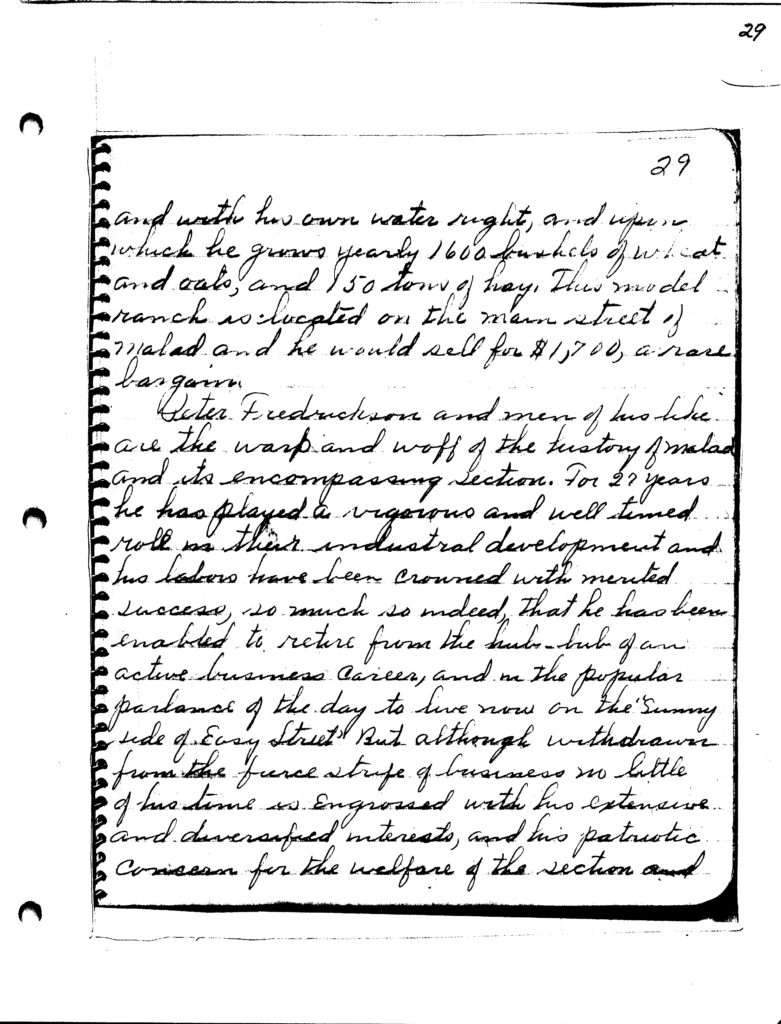 29
29
and with his own water right, and upon
which he grows yearly 1600 bushels of wheat
and oats, and 150 tons of hay. This model
ranch is located on the main street of
Malad and he would sell for $1,700, a rare
bargain.
Peter Fredrickson and men of his like
are the warp and woff of the history of Malad
and its encompassing section. For 27 years
he has played a vigorous and well timed
roll in their industral development and
his labors have been crowned with merited
success, so much so indeed, that he has been
enabled to retire from the hub-bub of an
active business career, and in the popular
parlance of the day to live now on the "Sunny
side of Easy Street" But although withdrawn
from the fierce strife of business no little
of his time is engrossed with his extensive
and diversified interests, and his patriotic
concern for the welfare of the section and